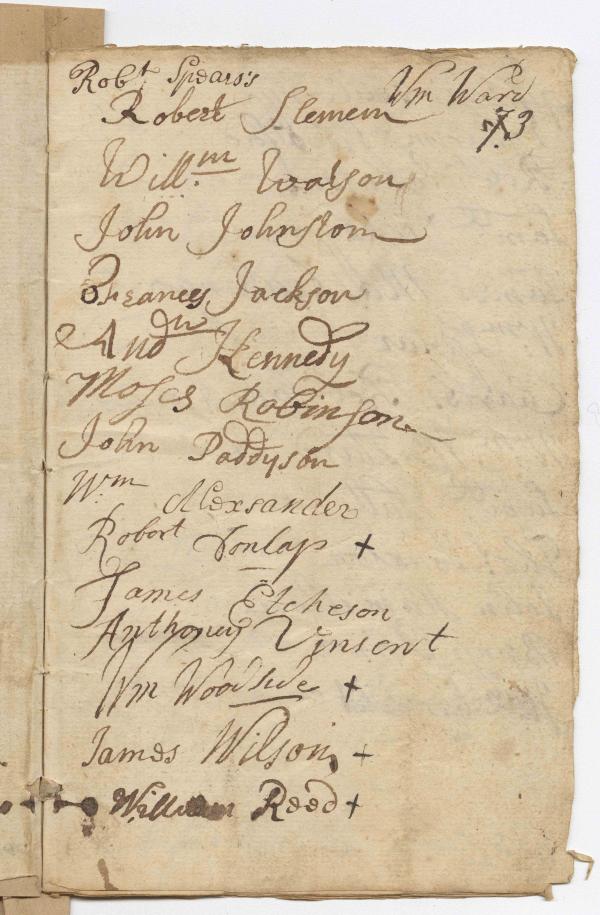 Robt Spears's Wm Ward
Robert Slemem 73
Willm Watson
John Johnstom
Frances Jackson
Andw Kennedy
Moses Robinson
John Paddyson
Wm Alexsander
Robort Donlap +
James Etcheson
Anthoney Vinsent
Wm Woodside +
James Wilson +
William Reed +